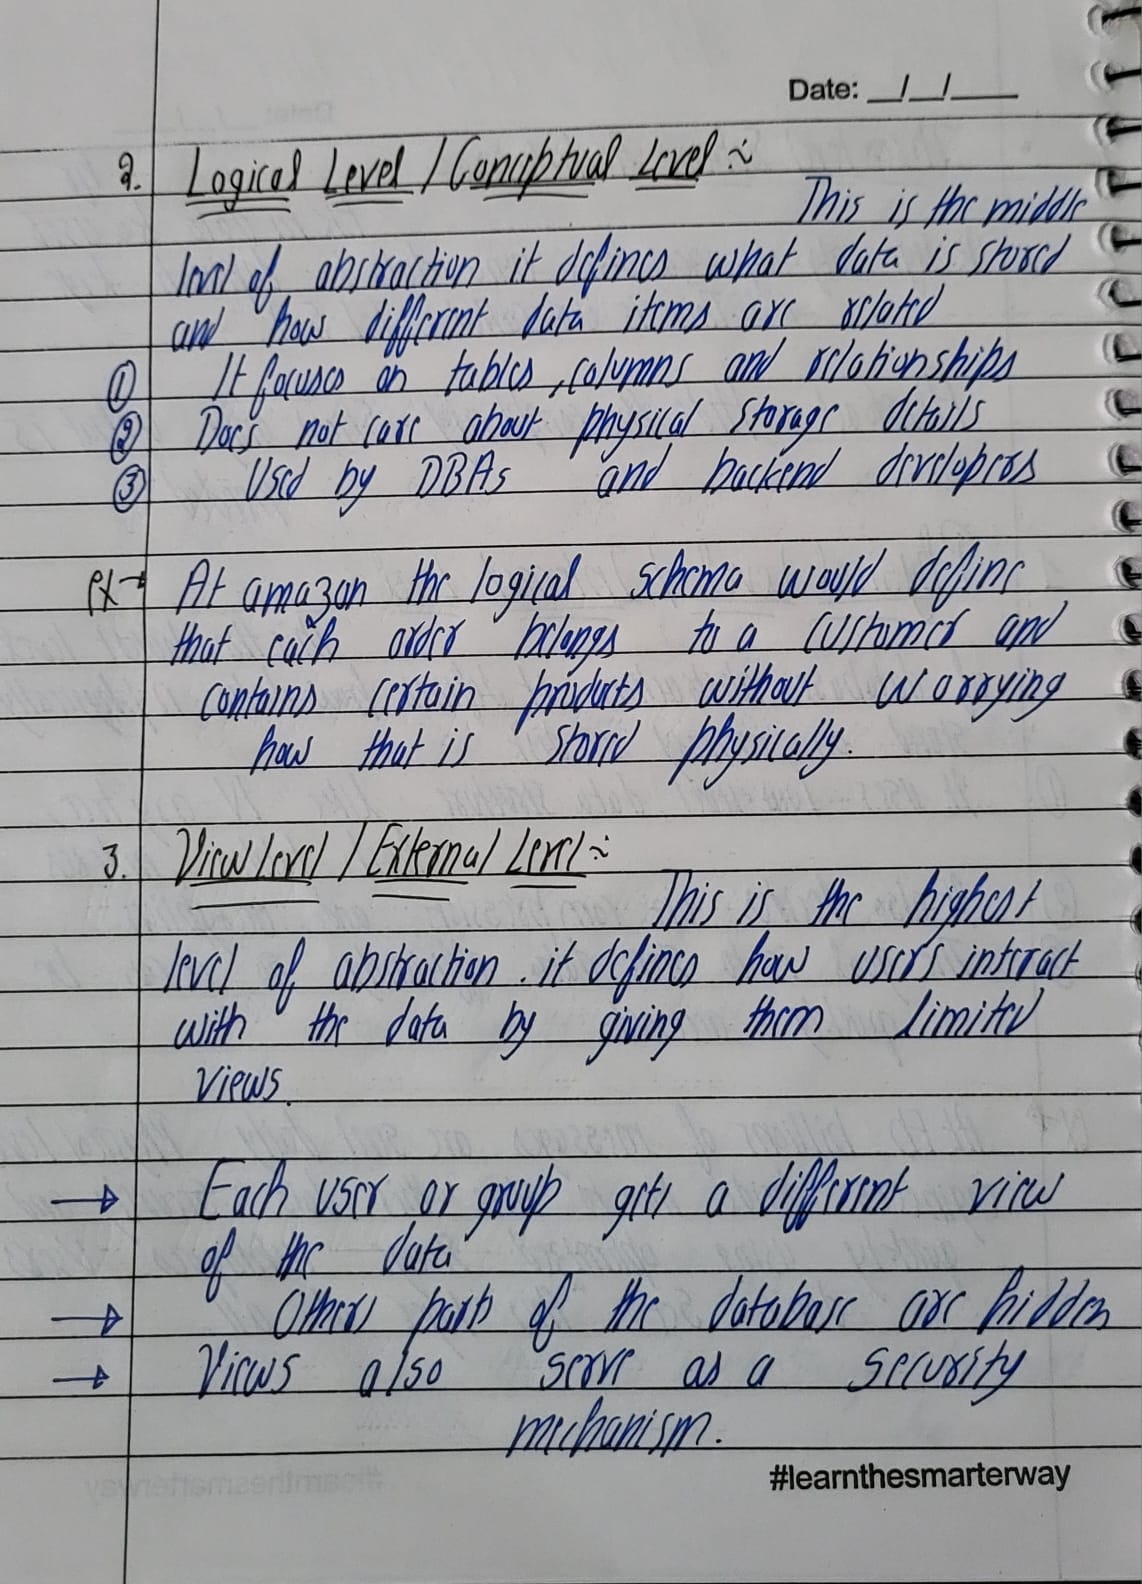 Date: __/__/____
2. Logical Level / Conceptual Level :-
This is the middle
level of abstraction it defines what data is stored
and how different data items are related
① It focuses on tables, columns and relationships
② Does not care about physical storage details
③ Used by DBAs and backend developers
ex→ At amazon the logical schema would define
that each order belongs to a customer and
contains certain products without worrying
how that is stored physically.
3. View level / External Level :-
This is the highest
level of abstraction . it defines how users interact
with the data by giving them limited
views.
→ Each user or group gets a different view
of the data
→ Others parts of the database are hidden
→ Views also serve as a security
mechanism.
#learnthesmarterway